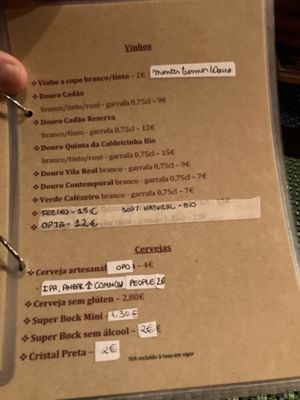 Vinhos
❖ Vinho a copo branco/tinto - 2€
❖ Douro Cadão
branco/tinto/rosé - garrafa 0,75cl – 9€
❖ Douro Cadão Reserva
branco/tinto - garrafa 0,75cl – 12€
❖ Douro Quinta da Caldeirinha Bio
branco/tinto/rosé - garrafa 0,75cl – 15€
❖ Douro Vila Real branco - garrafa 0,75cl – 9€
❖ Douro Contemporal branco - garrafa 0,75cl – 7€
❖ Verde Cafézeiro branco - garrafa 0,75cl – 7€
FREIXO - 15€ 100% NATURAL - BIO
OPTA - 12€
Cervejas
❖ Cerveja artesanal OPO – 4€
- IPA, AMBAR ↑ COMMON PEOPLE 2€
❖ Cerveja sem glúten – 2,80€
❖ Super Bock Mini - 1.30€
❖ Super Bock sem álcool – 2€
❖ Cristal Preta – 2€
IVA incluído à taxa em vigor